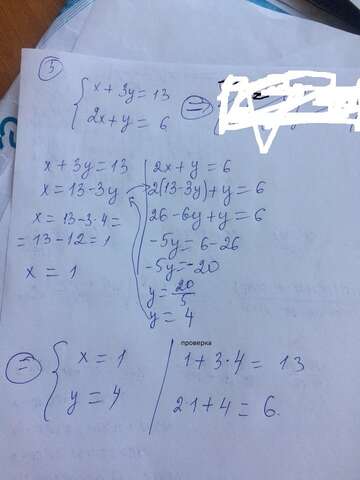 5
{ x + 3y = 13
2x + y = 6 =
x + 3y = 13
x = 13 - 3y
x = 13 - 3·4 =
= 13 - 12 = 1
x = 1
2x + y = 6
2(13 - 3y) + y = 6
26 - 6y + y = 6
-5y = 6 - 26
-5y = -20
y = 20/5
y = 4
= { x = 1
y = 4
проверка
1 + 3·4 = 13
2·1 + 4 = 6.